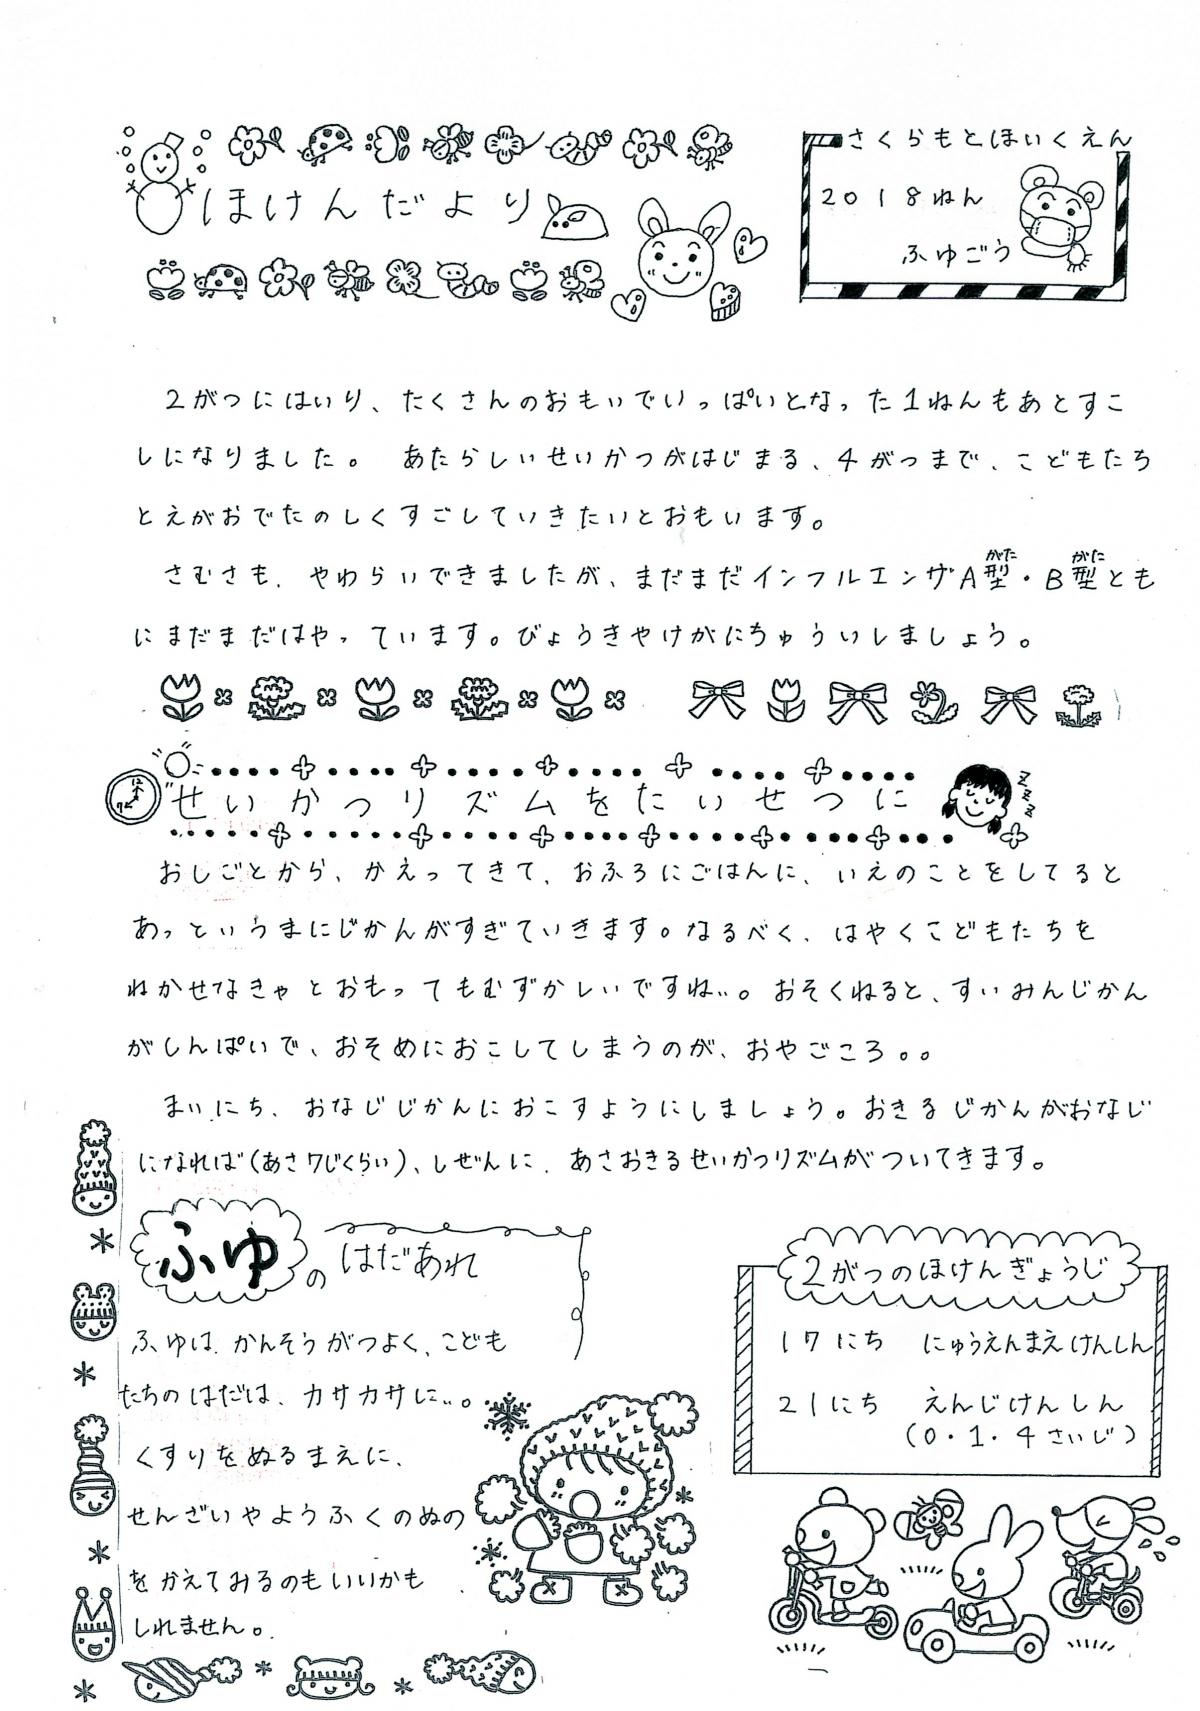 ほけんだより
さくらもとほいくえん
2018ねん
ふゆごう
2がつにはいり、たくさんのおもいでいっぱいとなった1ねんもあとすこ
しになりました。 あたらしいせいかつがはじまる、4がつまで、こどもたち
とえがおでたのしくすごしていきたいとおもいます。
さむさも、やわらいできましたが、まだまだインフルエンザA型(がた)・B型(がた)とも
にまだまだはやっています。びょうきやけがにちゅういしましょう。
せいかつリズムをたいせつに
おしごとから、かえってきて、おふろにごはんに、いえのことをしてると
あっというまにじかんがすぎていきます。なるべく、はやくこどもたちを
ねかせなきゃとおもってもむずかしいですね…。おそくねると、すいみんじかん
がしんぱいで、おそめにおこしてしまうのが、おやごころ。。
まいにち、おなじじかんにおこすようにしましょう。おきるじかんがおなじ
になれば(あさ7じくらい)、しぜんに、あさおきるせいかつリズムがついてきます。
ふゆのはだあれ
ふゆは、かんそうがつよく、こども
たちのはだは、カサカサに…。
くすりをぬるまえに、
せんざいやようふくのぬの
をかえてみるのもいいかも
しれません。
2がつのほけんぎょうじ
17にち にゅうえんまえけんしん
21にち えんじけんしん
(0・1・4さいじ)